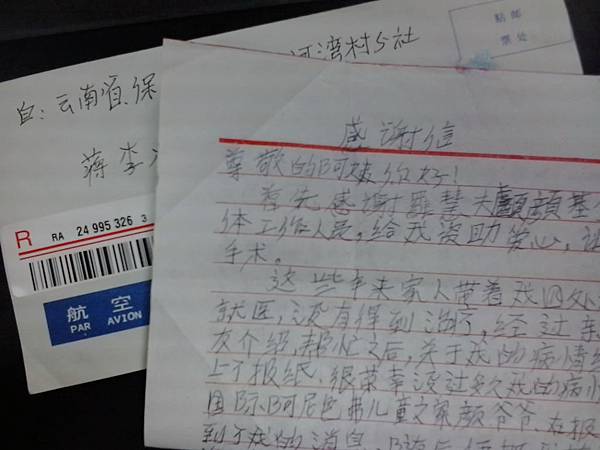 贴邮
票处
河湾村分社
自:云南省保
蒋李
R RA 24 995 326 3
航空
PAR AVION
感谢信
尊敬的阿婆你好!
首先感谢罗慧夫颅颜基
体工作人员,给我资助爱心,让
手术。
这些年来家人带着我四处
就医,没有得到治疗,经过亲
友介绍,帮忙之后,关于我的病情
上了报纸、很荣幸没过多久我的病
国际阿尼色弗儿童之家颜爷爷、在报
到了我的消息